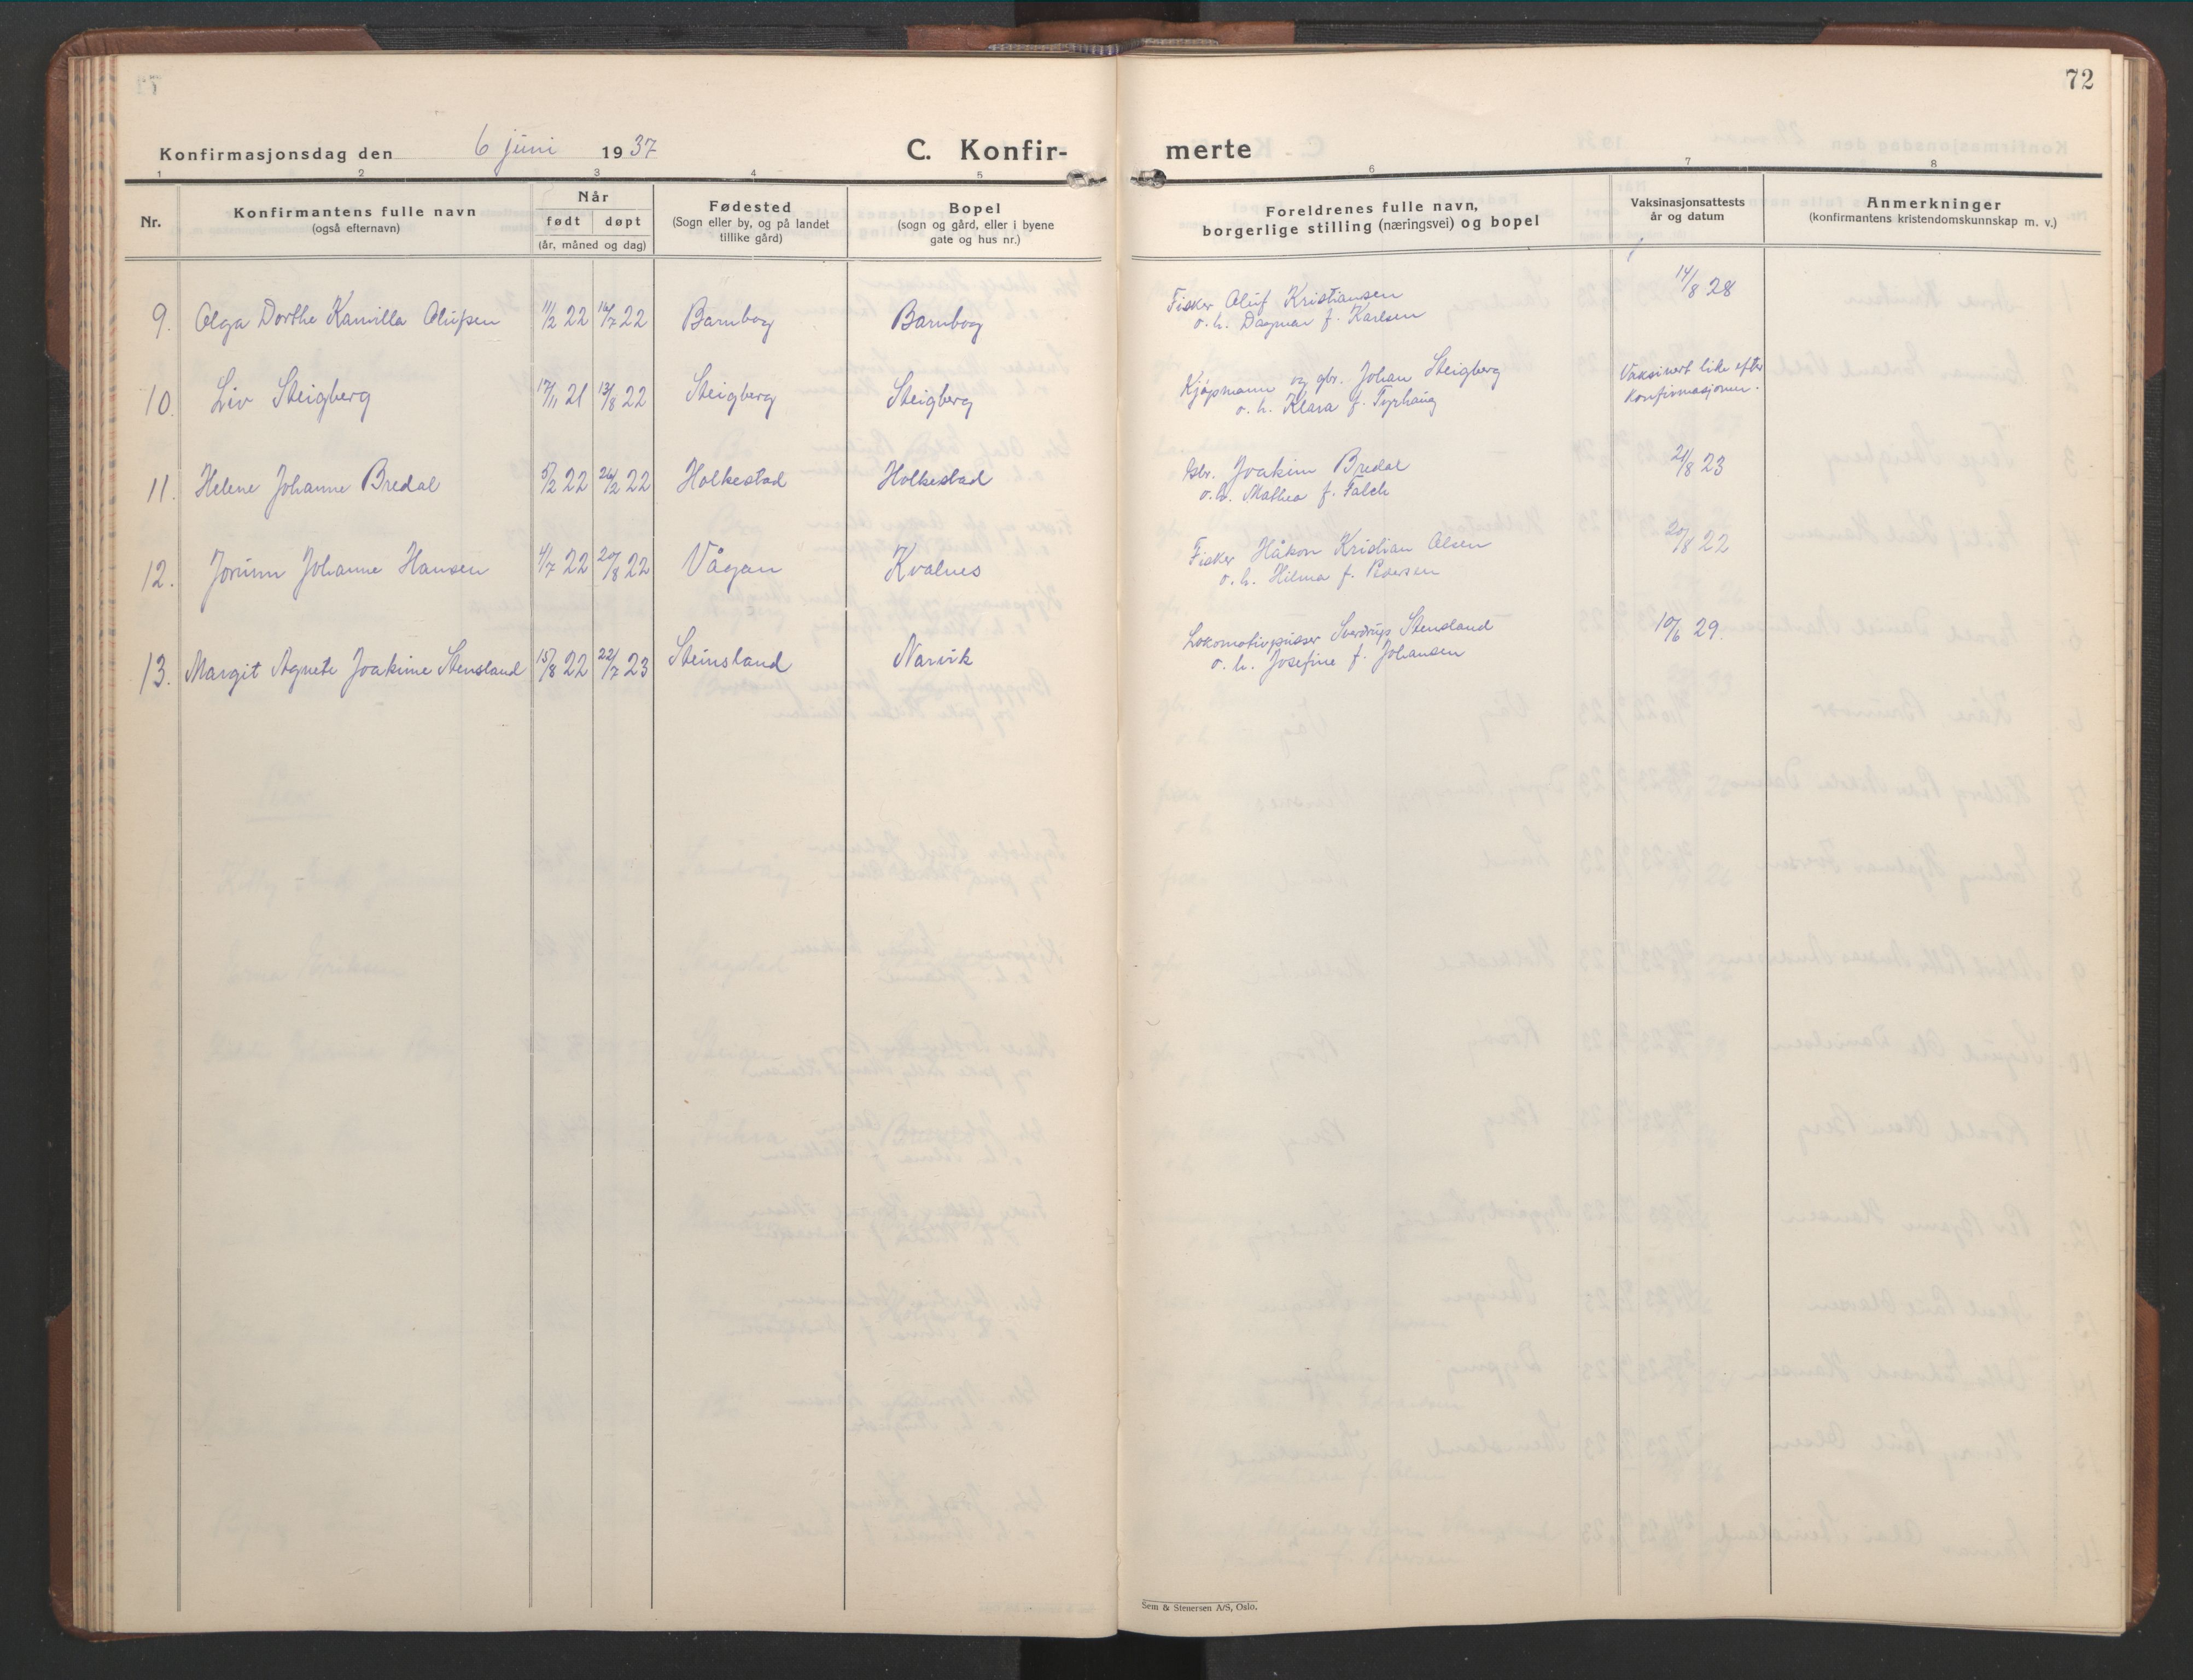 72
Konfirmasjonsdag den 6 juni 1937
C. Konfir-
merte
1 2 3 4 5 6 7 8
Nr.
Konfirmantens fulle navn
(også efternavn)
Når
født døpt
(år, måned og dag)
Fødested
(Sogn eller by, og på landet
tillike gård)
Bopel
(sogn og gård, eller i byene
gate og hus nr.)
Foreldrenes fulle navn,
borgerlige stilling (næringsvei) og bopel
Vaksinasjonsattests
år og datum
Anmerkninger
(konfirmantens kristendomskunnskap m. v.)
9. Olga Dorthe Kamilla Olufsen 11/2 22 16/7 22 Barnbog Barnbog
Fisker Oluf Kristiansen
o. h. Dagmar f. Karlsen
14/8 28
10. Liv Steigberg 17/11 21 13/8 22 Steigberg Steigberg
Kjøpmann og gbr. Johan Steigberg
o. h. Klara f. Tyrhaug
Vaksinert like efter
konfirmasjonen.
11. Helene Johanne Bredal 5/2 22 26/2 22 Holkestad Holkestad
Gbr. Joakim Bredal
o. h. Mathea f. Falch
21/8 23
12. Jorunn Johanne Hansen 4/7 22 20/8 22 Vågan Kvalnes
Fisker Håkon Kristian Olsen
o. h. Hilma f. Pedersen
20/8 22
13. Margit Agnete Joakime Stensland 15/8 22 22/7 23 Steinsland Narvik
Lokomotivpusser Sverdrup Stensland
o. h. Josefine f. Johansen
10/6 29.
Sem & Stenersen A/S, Oslo.